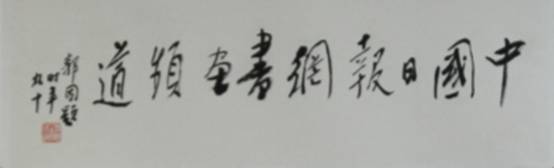 中國日報網書畫頻道
郭同題
时年
九十